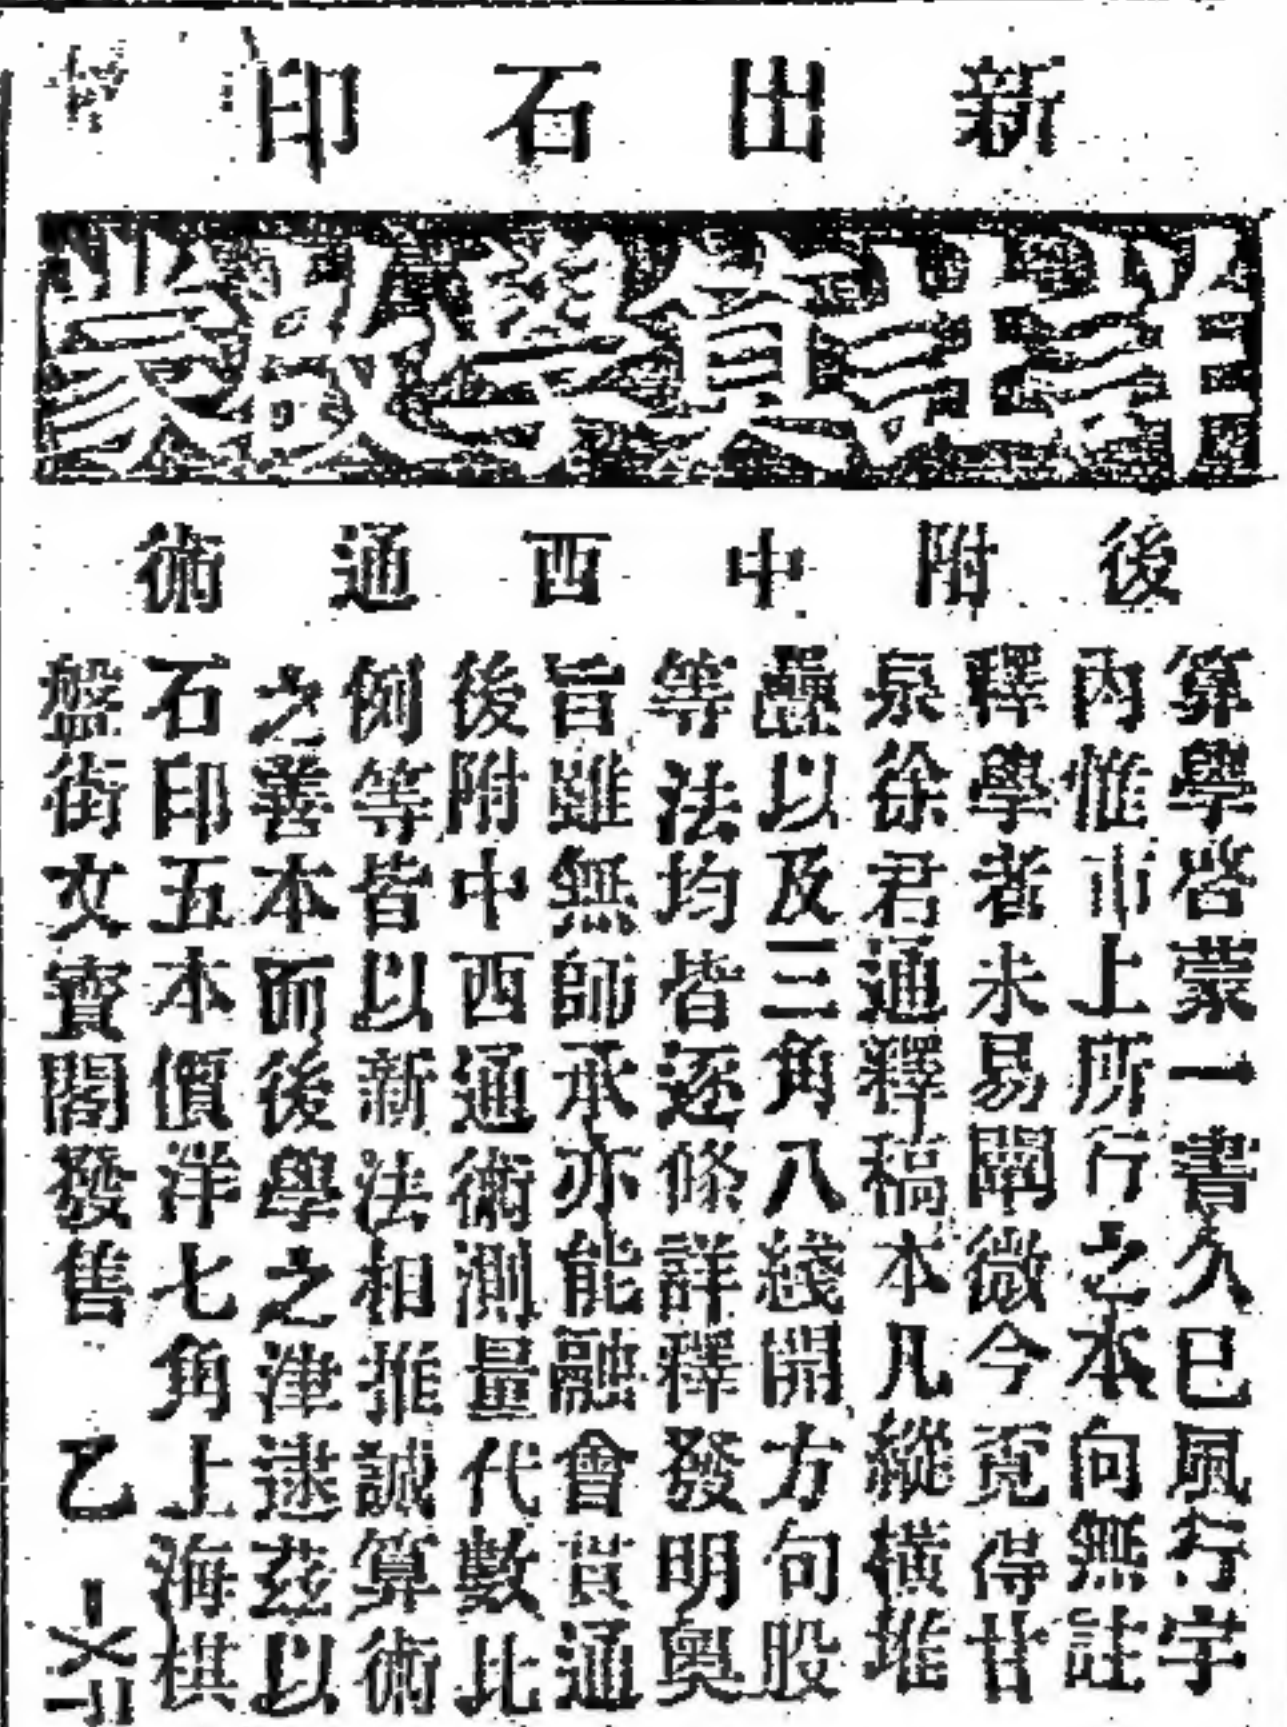 新出石印
詳註算學啟蒙
後附中西通術
算學啓蒙一書久已風行宇
內惟市上所行之本向無註
釋學者未易闡微今覓得甘
泉徐君通釋稿本凡縱橫堆
疊以及三角八綫開方句股
等法均皆逐條詳釋發明奥
旨雖無師承亦能融會貫通
後附中西通術測量代數比
例等皆以新法相推誠算術
之善本而後學之津逮茲以
石印五本價洋七角上海棋
盤街文寳閣發售 乙